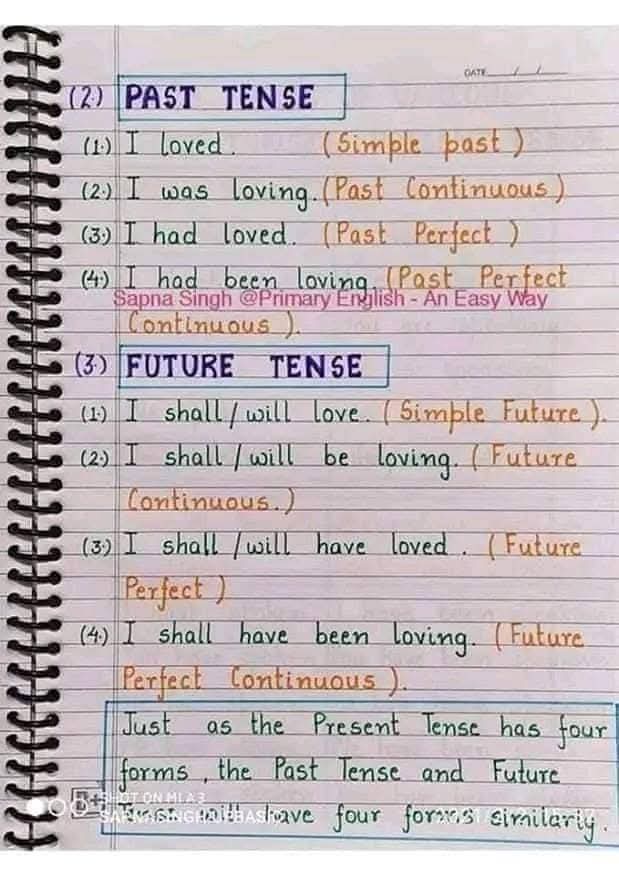 DATE / /
(2.) PAST TENSE
(1.) I loved. (Simple past)
(2.) I was loving. (Past Continuous)
(3.) I had loved. (Past Perfect)
(4.) I had been loving. (Past Perfect
Sapna Singh @Primary English - An Easy Way
Continuous).
(3.) FUTURE TENSE
(1.) I shall/will love. (Simple Future).
(2.) I shall/will be loving. (Future
Continuous.)
(3.) I shall/will have loved. (Future
Perfect)
(4.) I shall have been loving. (Future
Perfect Continuous).
Just as the Present Tense has four
forms, the Past Tense and Future
SHOT ON MI A3
will have four forms similarly.